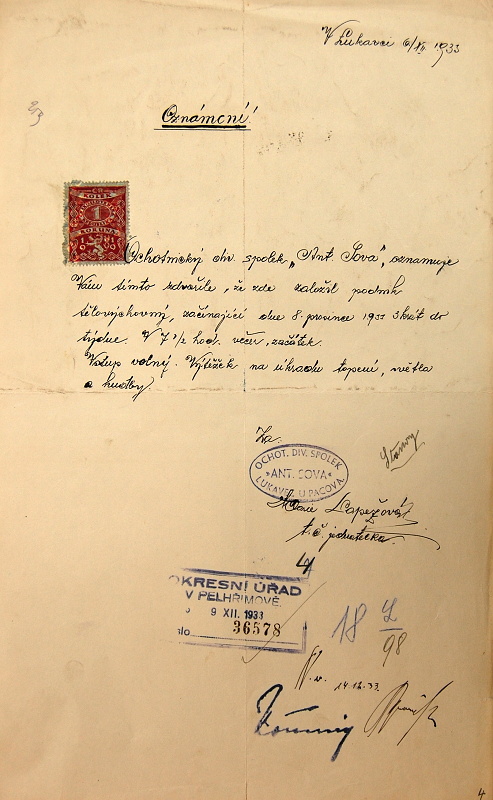 V Lukavci 6/XII. 1933
Oznámení!
KOLEK
1
KORUNA
Ochotnický div. spolek „Ant. Sova", oznamuje
Vám tímto zdvořile, že zde založil podnik
tělovýchovný, začínající dne 8. prosince 1933 3krát do
týdne. V 7 1/2 hod. večer, začátek.
Vstup volný. Výtěžek na úhradu topení, světla
a hudby.
Za
Stanovy
OCHOT. DIV. SPOLEK
"ANT. SOVA"
LUKAVEC U PACOVA.
Marie
t. č. jednatelka.
OKRESNÍ ÚŘAD
V PELHŘIMOVĚ.
9 XII. 1933
36578
18
98
14.12.33.
4